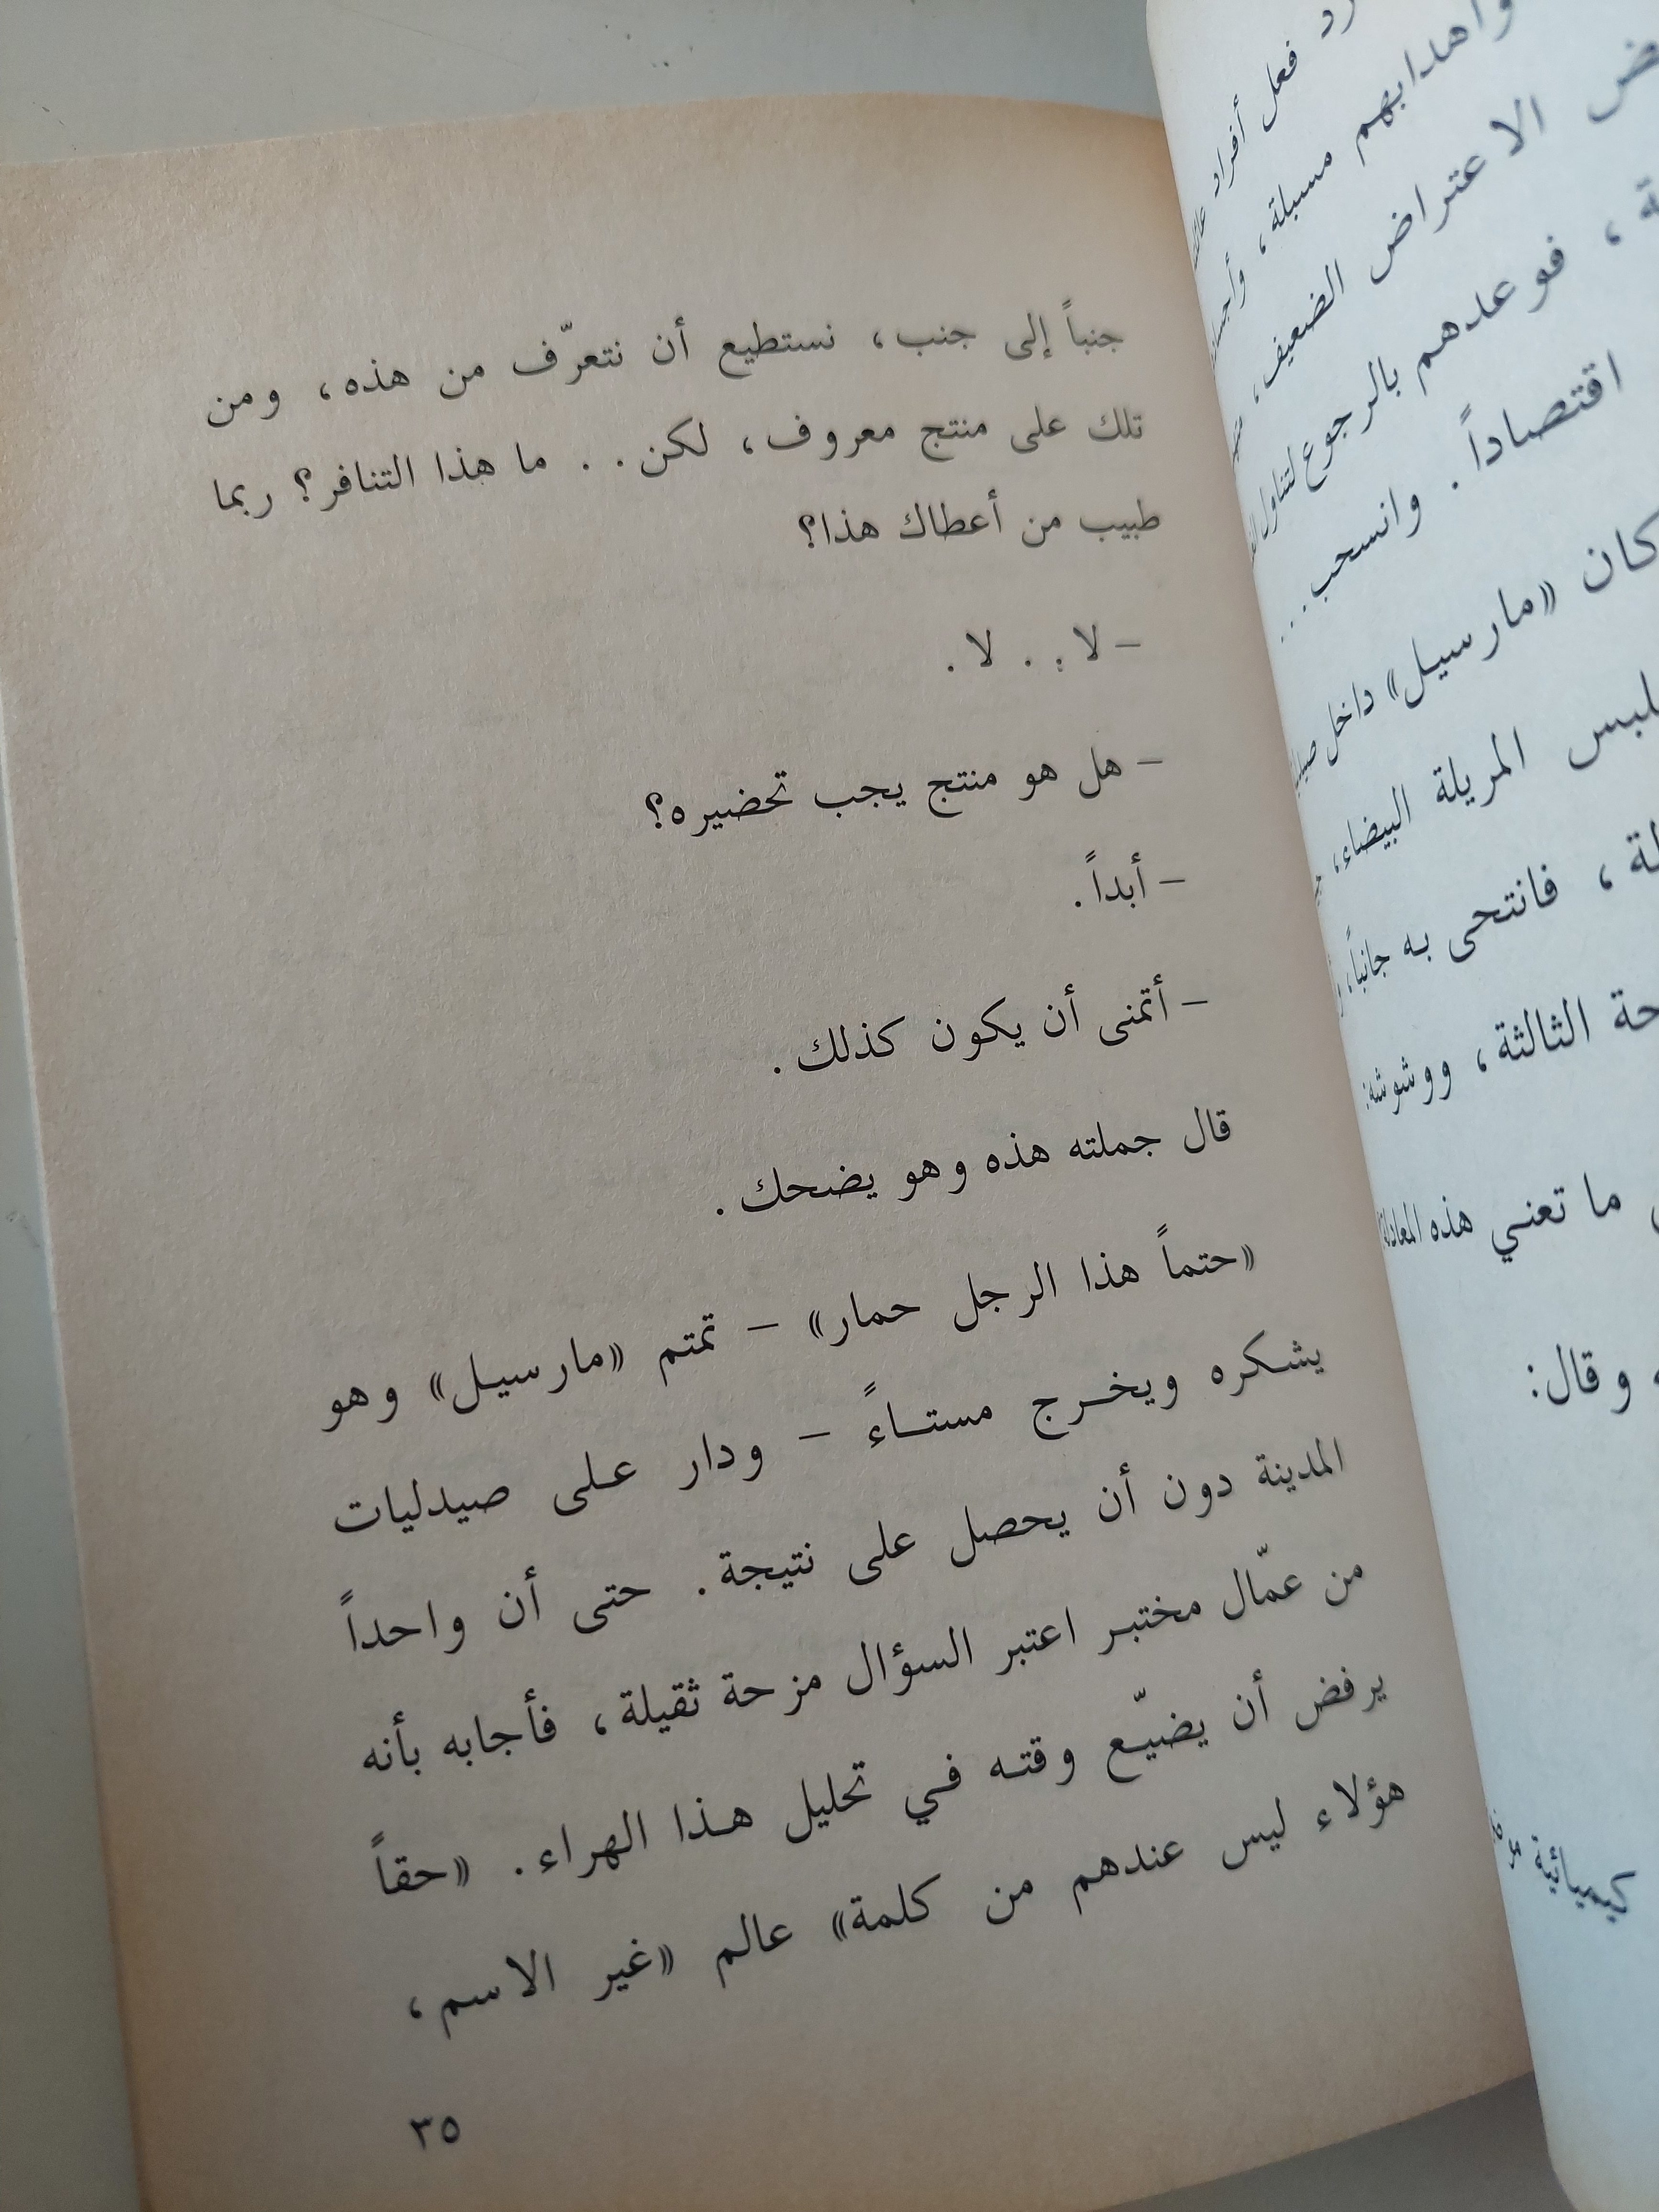 رد فعل أفراد
وأهدابهم مسبلة،
الاعتراض الضعيف،
فوعدهم بالرجوع لتناول
اقتصاداً. وانسحب...
كان «مارسيل» داخل
المريلة البيضاء،
فانتحى به جانباً،
الثالثة، ووشوشه:
ما تعني هذه المعادلة
وقال:
كيميائية
جنباً إلى جنب، نستطيع أن نتعرّف من هذه، ومن
تلك على منتج معروف، لكن.. ما هذا التنافر؟ ربما
طبيب من أعطاك هذا؟
– لا.. لا.
– هل هو منتج يجب تحضيره؟
– أبداً.
– أتمنى أن يكون كذلك.
قال جملته هذه وهو يضحك.
«حتماً هذا الرجل حمار» – تمتم «مارسيل» وهو
يشكره ويخرج مستاءً – ودار على صيدليات
المدينة دون أن يحصل على نتيجة. حتى أن واحداً
من عمّال مختبر اعتبر السؤال مزحة ثقيلة، فأجابه بأنه
يرفض أن يضيّع وقته في تحليل هذا الهراء. «حقاً
هؤلاء ليس عندهم من كلمة» عالم «غير الاسم،
٣٥